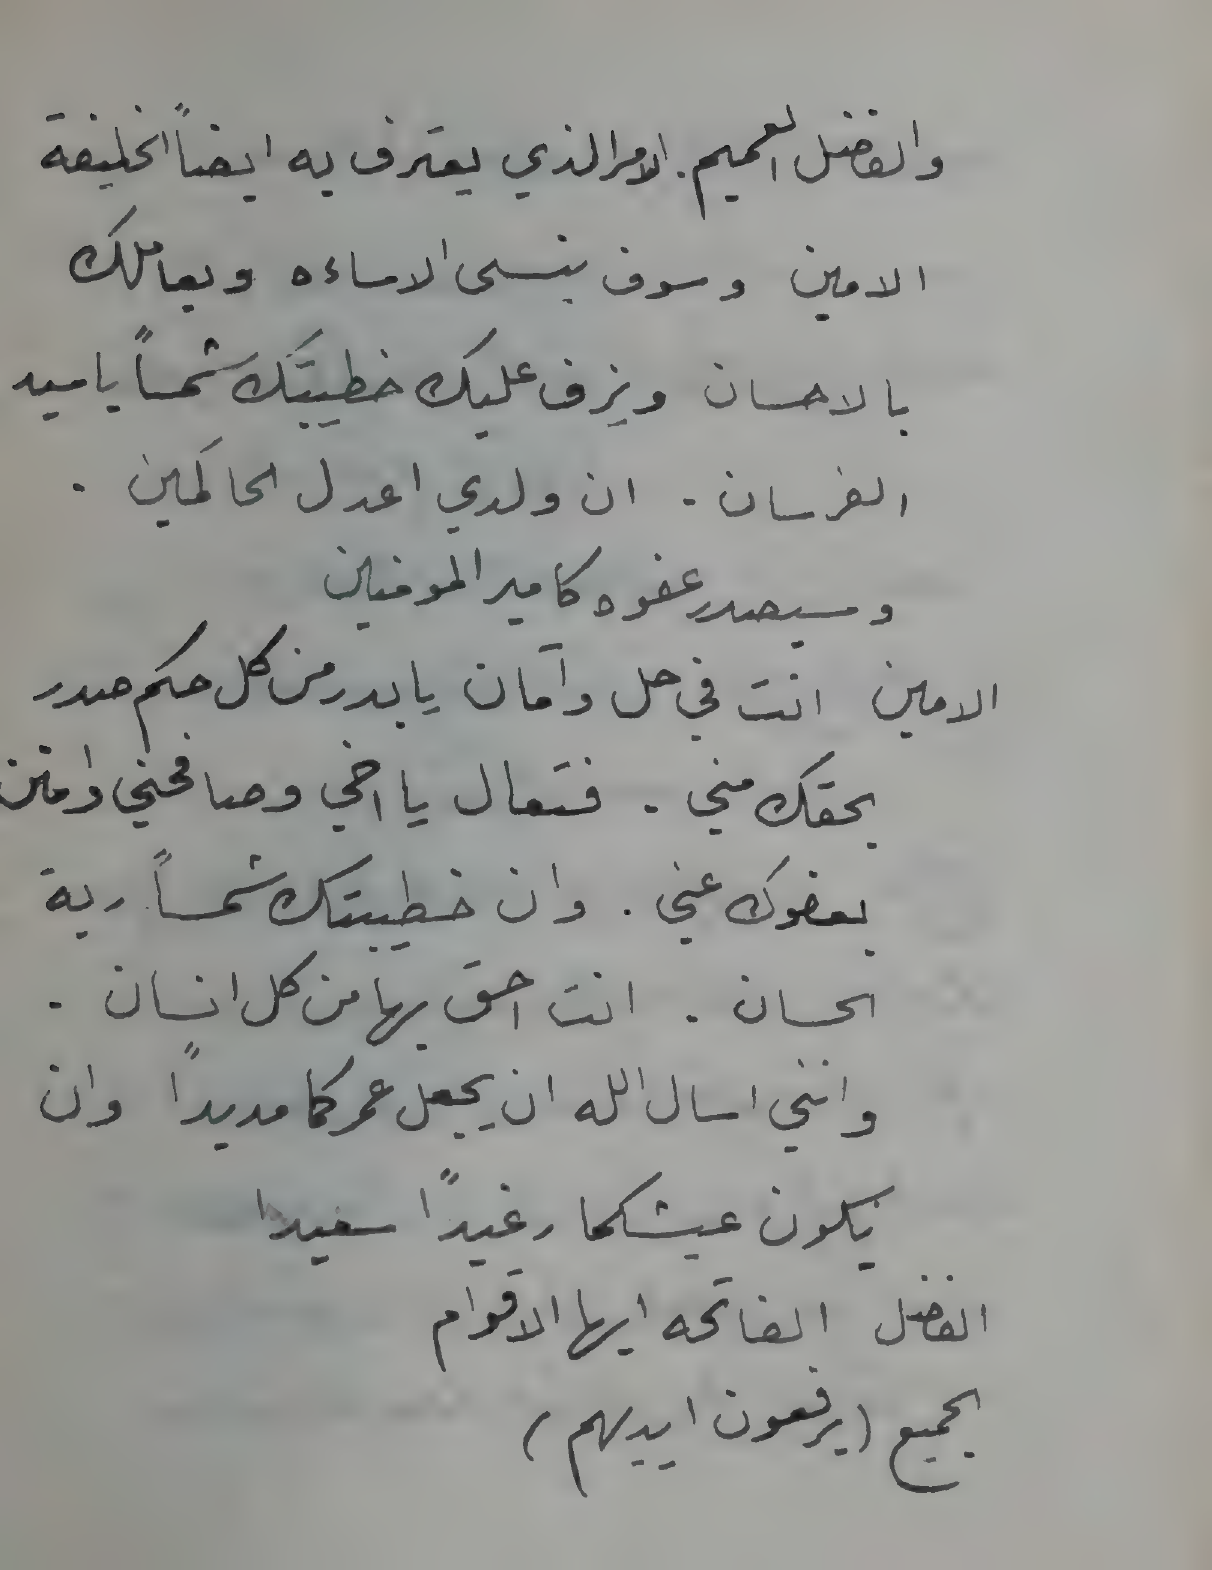 والفضل العميم. الامر الذي يعترف به ايضاً الخليفة
الامين وسوف ينسى الاساءه ويعاملك
بالاحسان ويزف عليك خطيبتك شمساً يا سيد
الفرسان. ان ولدي اعدل الحاكمين.
وسيصدر عفوه كامير المومنين
الامين انت في حل وآمان يا بدر من كل حكم صدر
بحقك مني. فتعال يا اخي وصافحني وامنن
بعفوك عني. وان خطيبتك شمساً ربة
الحسان. انت احق بها من كل انسان.
وانني اسال الله ان يجعل عمركما مديداً وان
يكون عيشكما رغيداً سعيدا
الفضل الفاتحه ايها الاقوام
الجميع (يرفعون ايديهم)